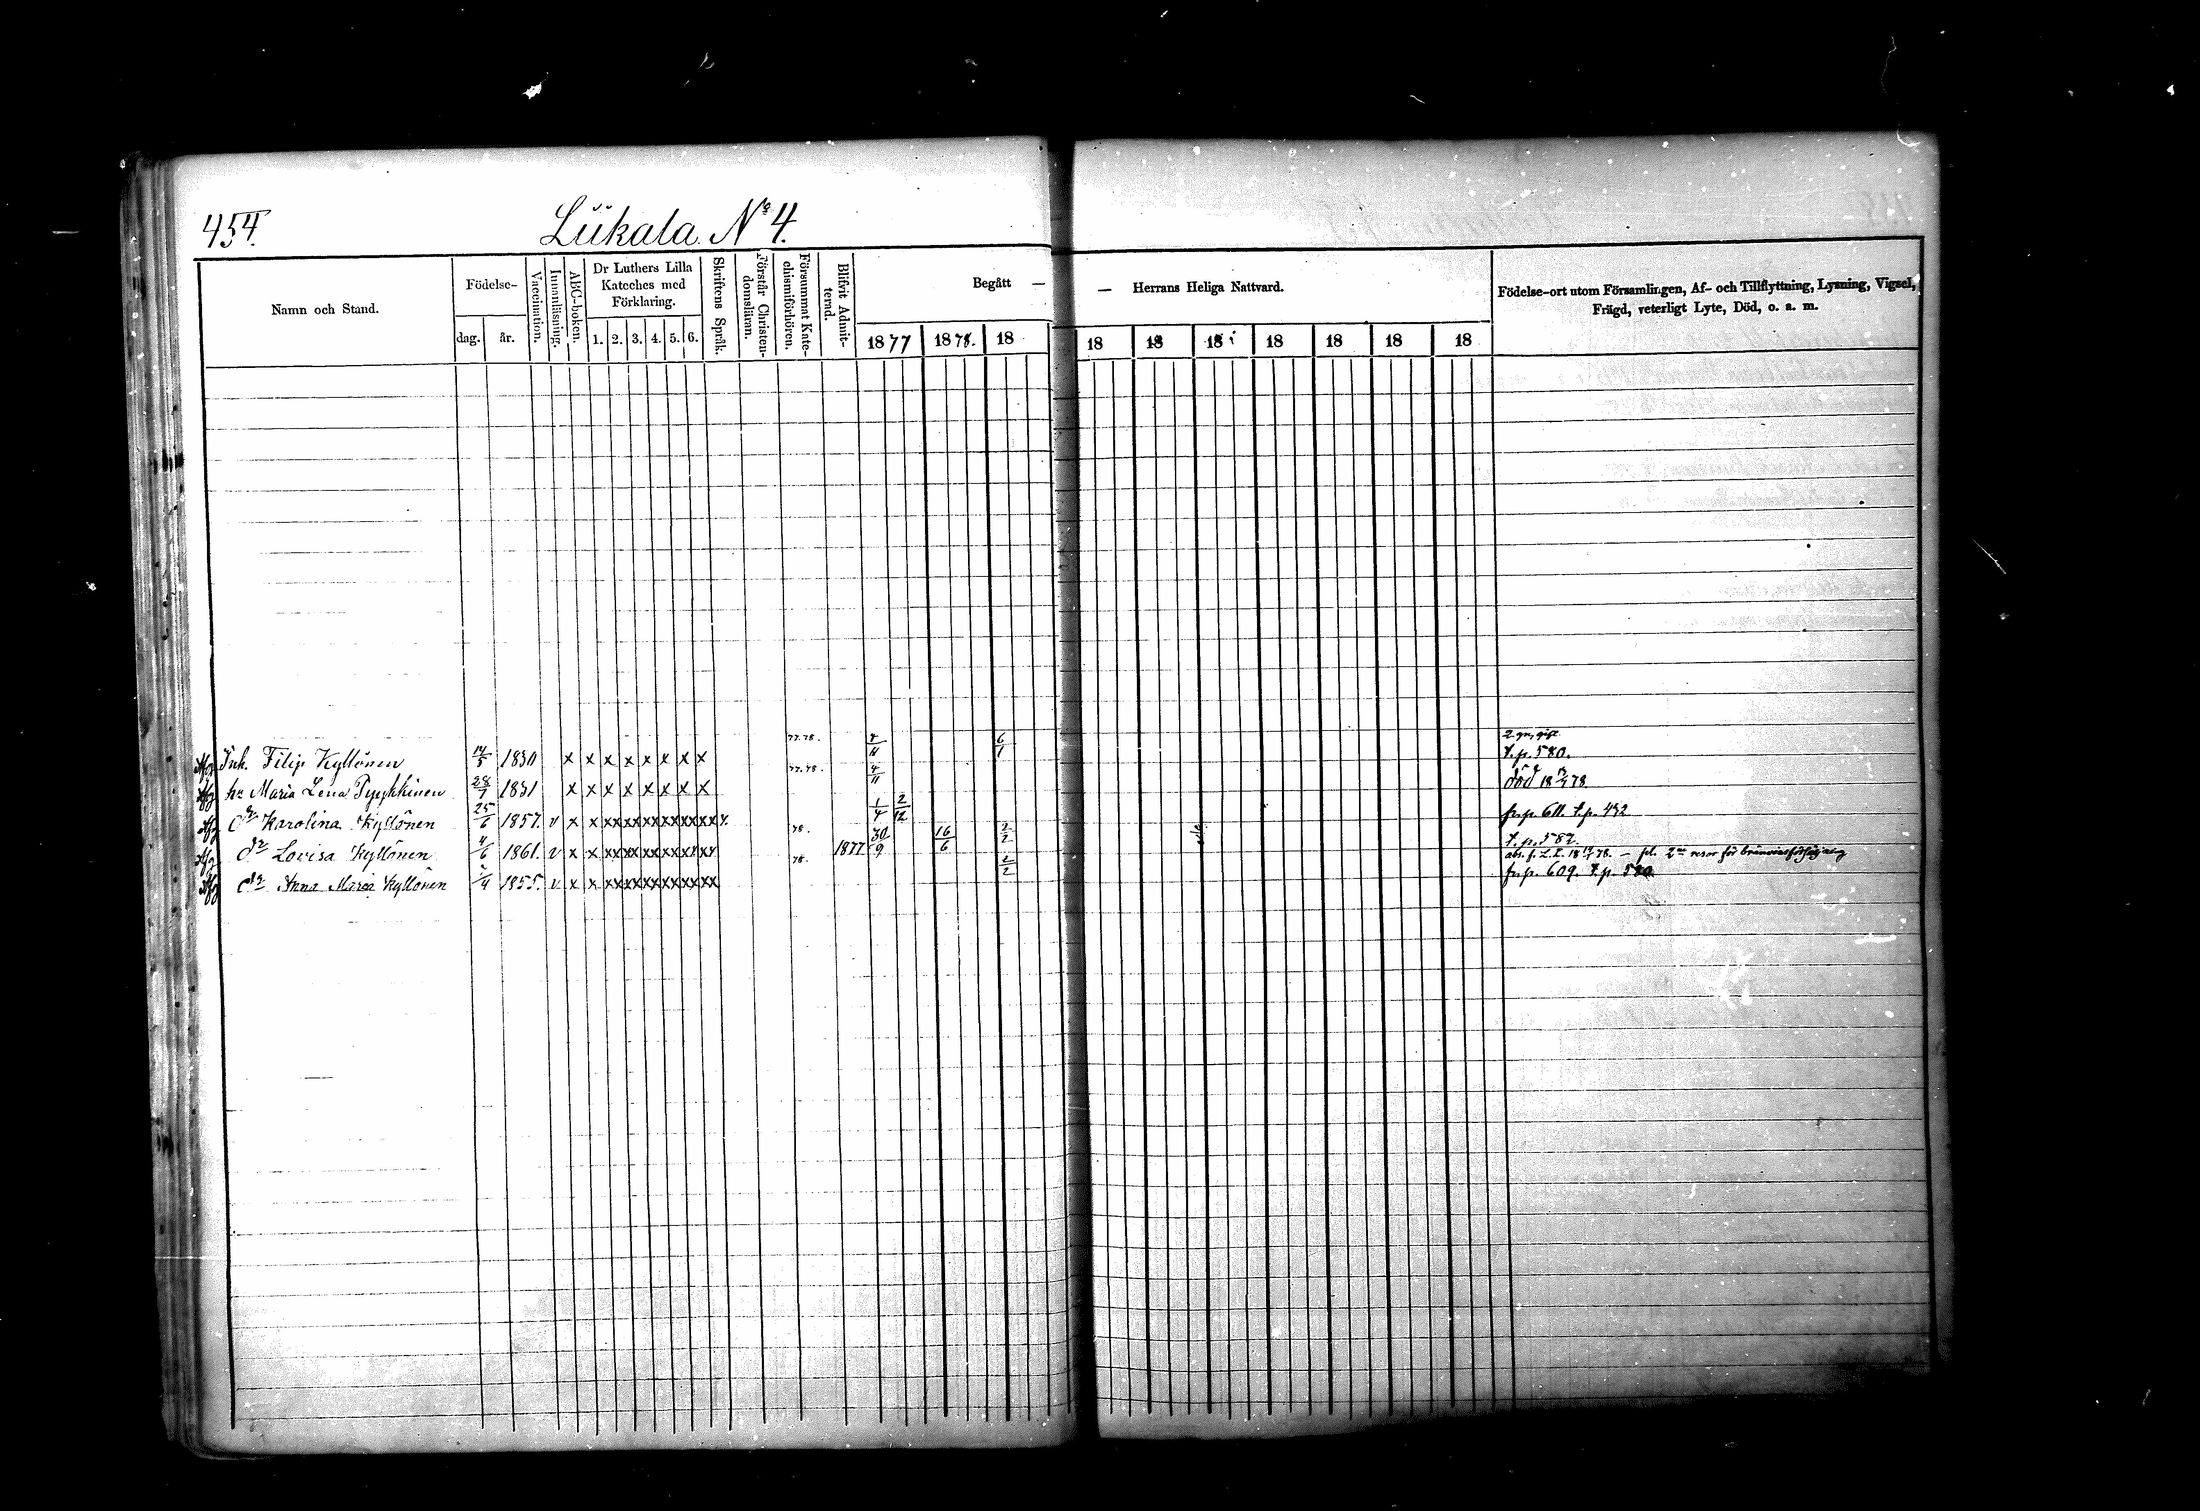 454.
Liikala N:o 4.
Namn och Stand.
Födelse-
dag.
år.
Vaccination.
Innanläsning.
ABC-boken.
Dr Luthers Lilla
Kateches med
Förklaring.
1. 2. 3. 4. 5. 6.
Skriftens Språk.
Förstår Christen-
domsläran.
Försummat Kate-
chismiförhören.
Blifvit Admit-
terad.
Begått —
— Herrans Heliga Nattvard.
1877 1878. 18
18 18 18 18 18 18 18
Födelse-ort utom Församlingen, Af- och Tillflyttning, Lysning, Vigsel,
Frägd, veterligt Lyte, Död, o. a. m.
Filip Kyllönen 14/5 1830 x x x x x x x x 77.78. 4/11 6/1 t.p. 580.
Maria Lena 28/7 1831 x x x x x x x x 77.78. 4/11 död 78
dr Karolina Kyllönen 25/6 1857. v x x xx xx xx xx xx xx 1/4 2/12 fr.p. 611. t.p. 432
dr Lovisa Kyllönen 4/6 1861. v x x xx xx xx xx xx xx 78. 1877 30/9 16/6 2/2 t.p. 582.
dr Anna Maria Kyllönen 1855. v x x xx xx xx xx xx xx 78. 2/2 fr.p. 609. t.p.